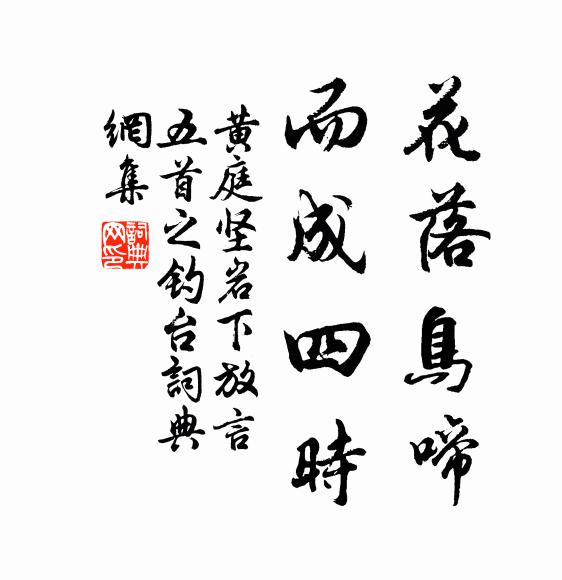 花落鳥啼
而成四時
黄庭坚岩下放言
五首之钓台詞典
網集
詞典網印